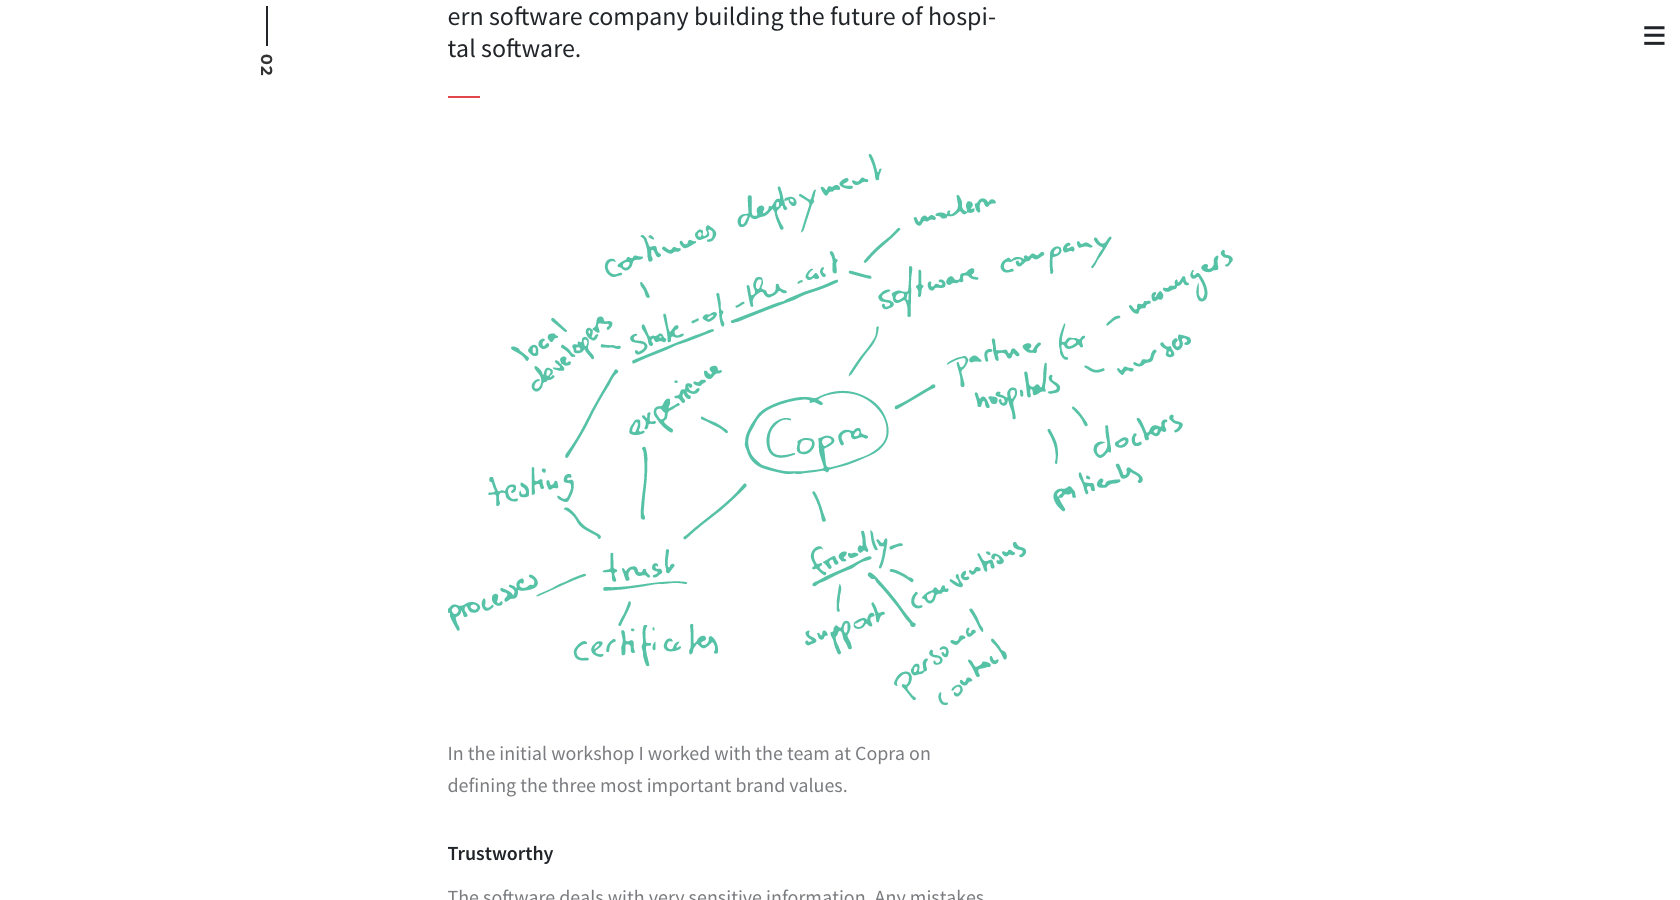 ern software company building the future of hospi-
tal software.
02
continues deployment
modern
state-of-the-art
software company
local
developers
managers
partner for
hospitals
nurses
experience
Copra
doctors
patients
testing
trust
friendly
conventions
processes
certificates
support
personal
contact
In the initial workshop I worked with the team at Copra on
defining the three most important brand values.
Trustworthy
The software deals with very sensitive information. Any mistakes